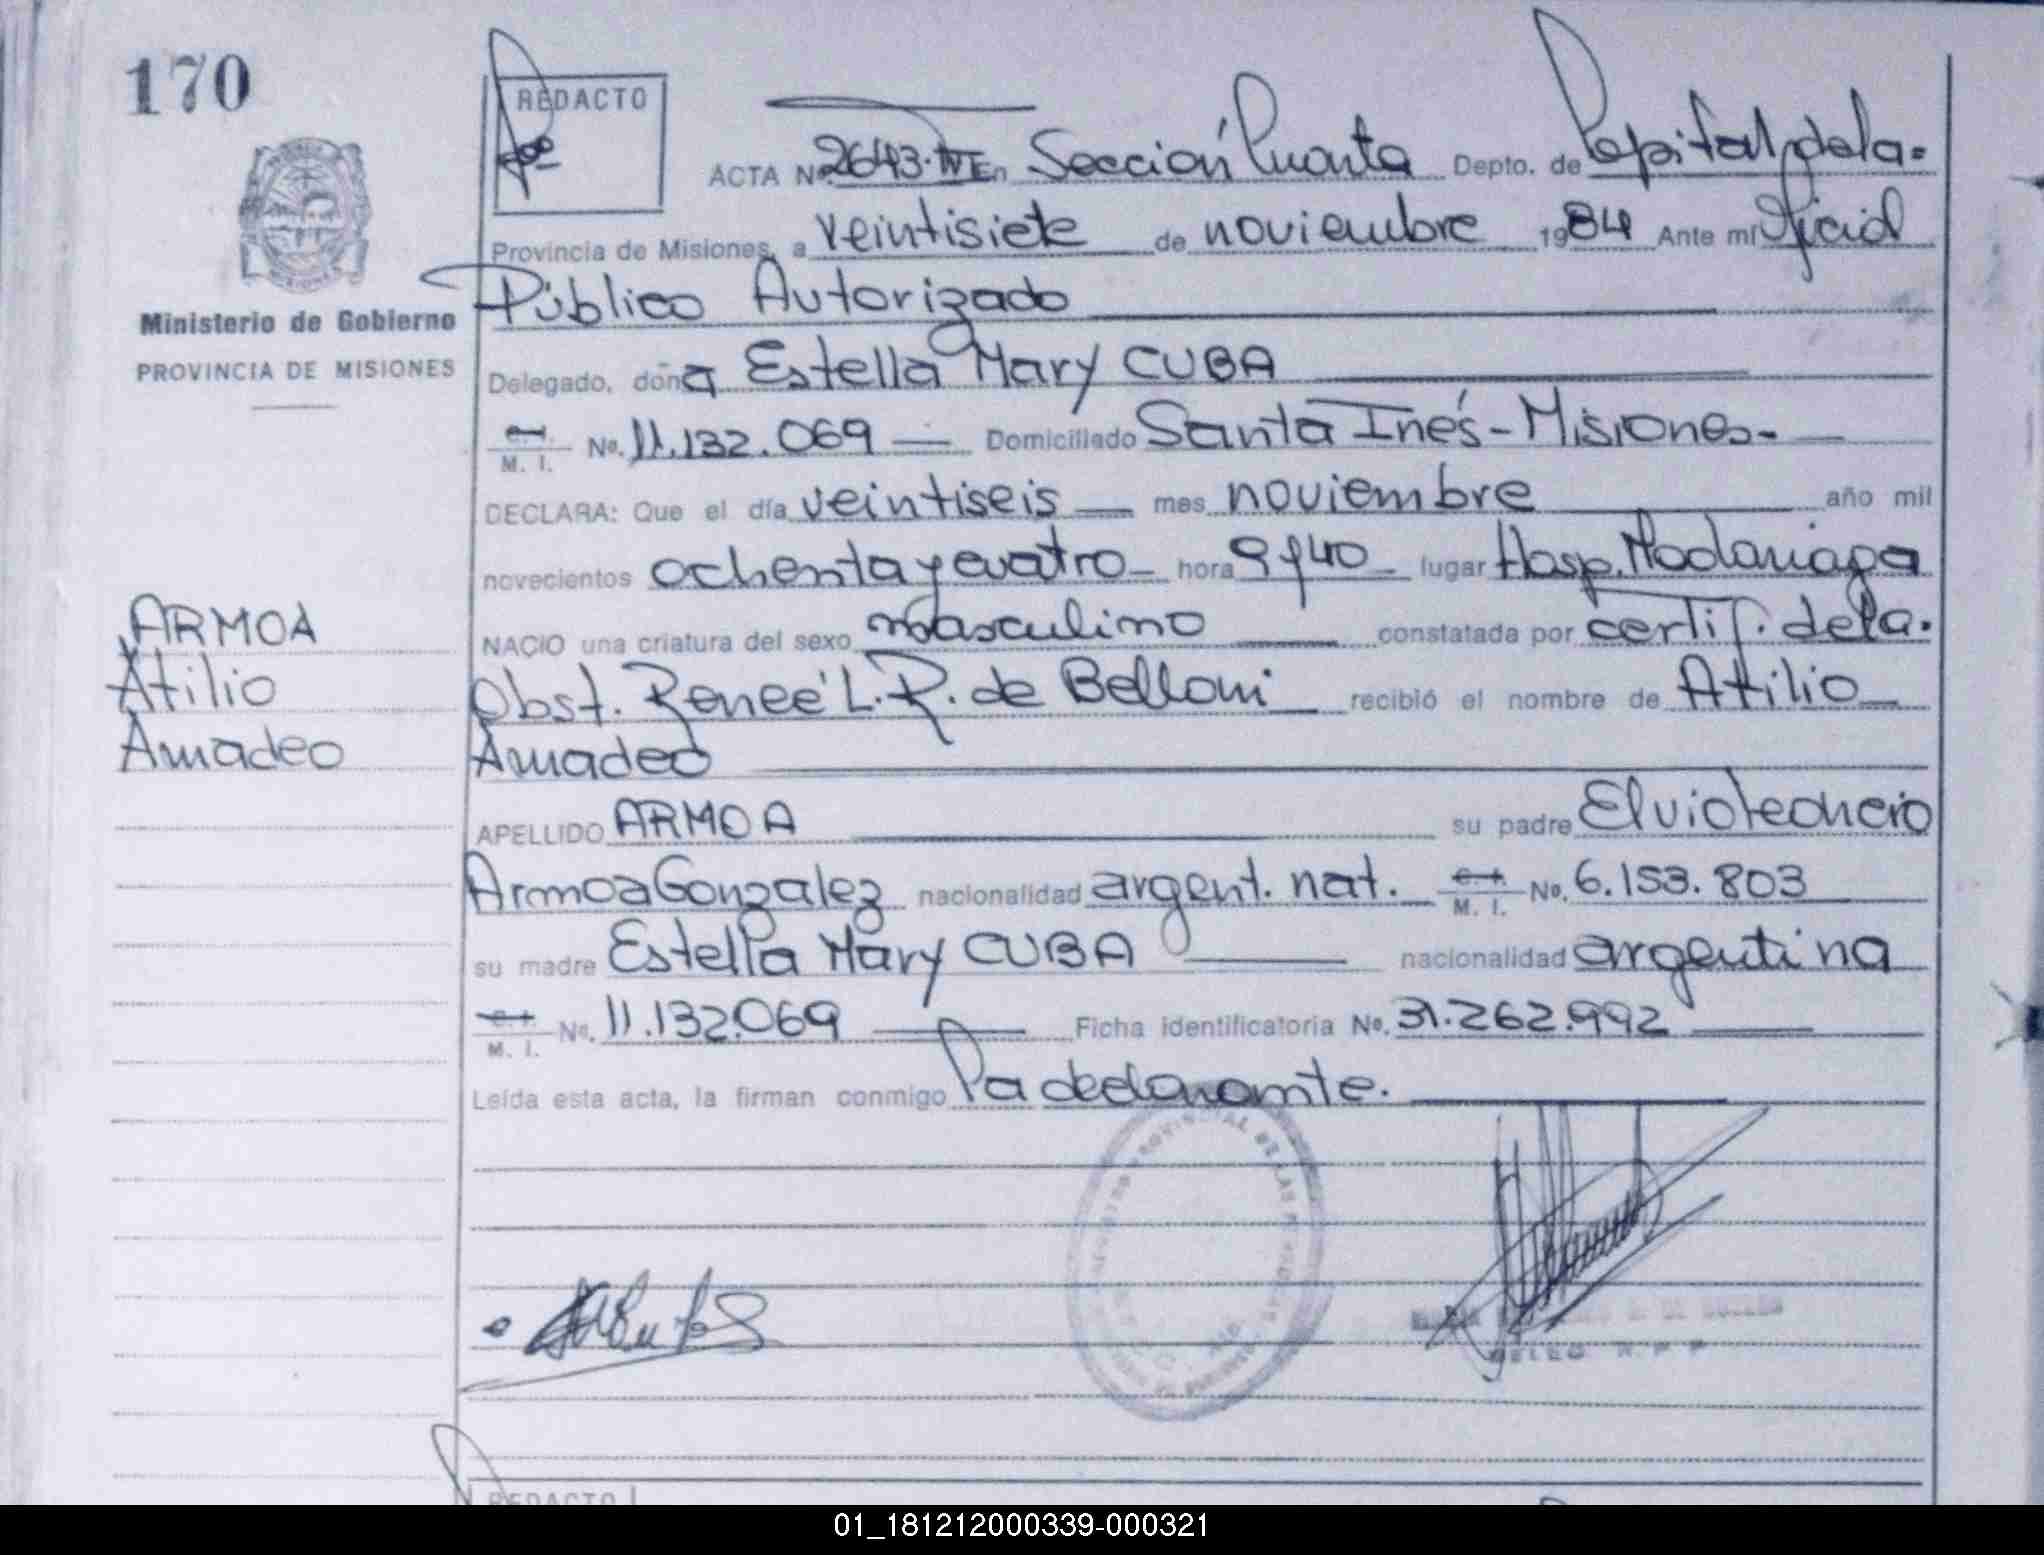 170
REDACTO
ACTA Nº 2643·IVT En Sección Cuarta Depto. de Capital de la.
Provincia de Misiones, a veintisiete de noviembre 1984 Ante mí Oficial
Público Autorizado
Ministerio de Gobierno
PROVINCIA DE MISIONES
Delegado, doña Estella Mary CUBA
M. I. No. 11.132.069 Domiciliado Santa Inés - Misiones-
DECLARA: Que el día veintiseis mes noviembre año mil
novecientos ochenta y cuatro hora 9 y 40 lugar Hosp. Madariaga
NACIO una criatura del sexo masculino constatada por certif. de la.
Obst. Reneé L. R. de Belloni recibió el nombre de Atilio
Amadeo
ARMOA
Atilio
Amadeo
APELLIDO ARMOA su padre Elvio
Armoa Gonzalez nacionalidad argent. nat. M. I. No. 6.153.803
su madre Estella Mary CUBA nacionalidad argentina
M. I. No. 11.132.069 Ficha identificatoria No. 31.262.992
Leída esta acta, la firman conmigo la declarante.
DELEG R. P. P
REDACTO
01_181212000339-000321